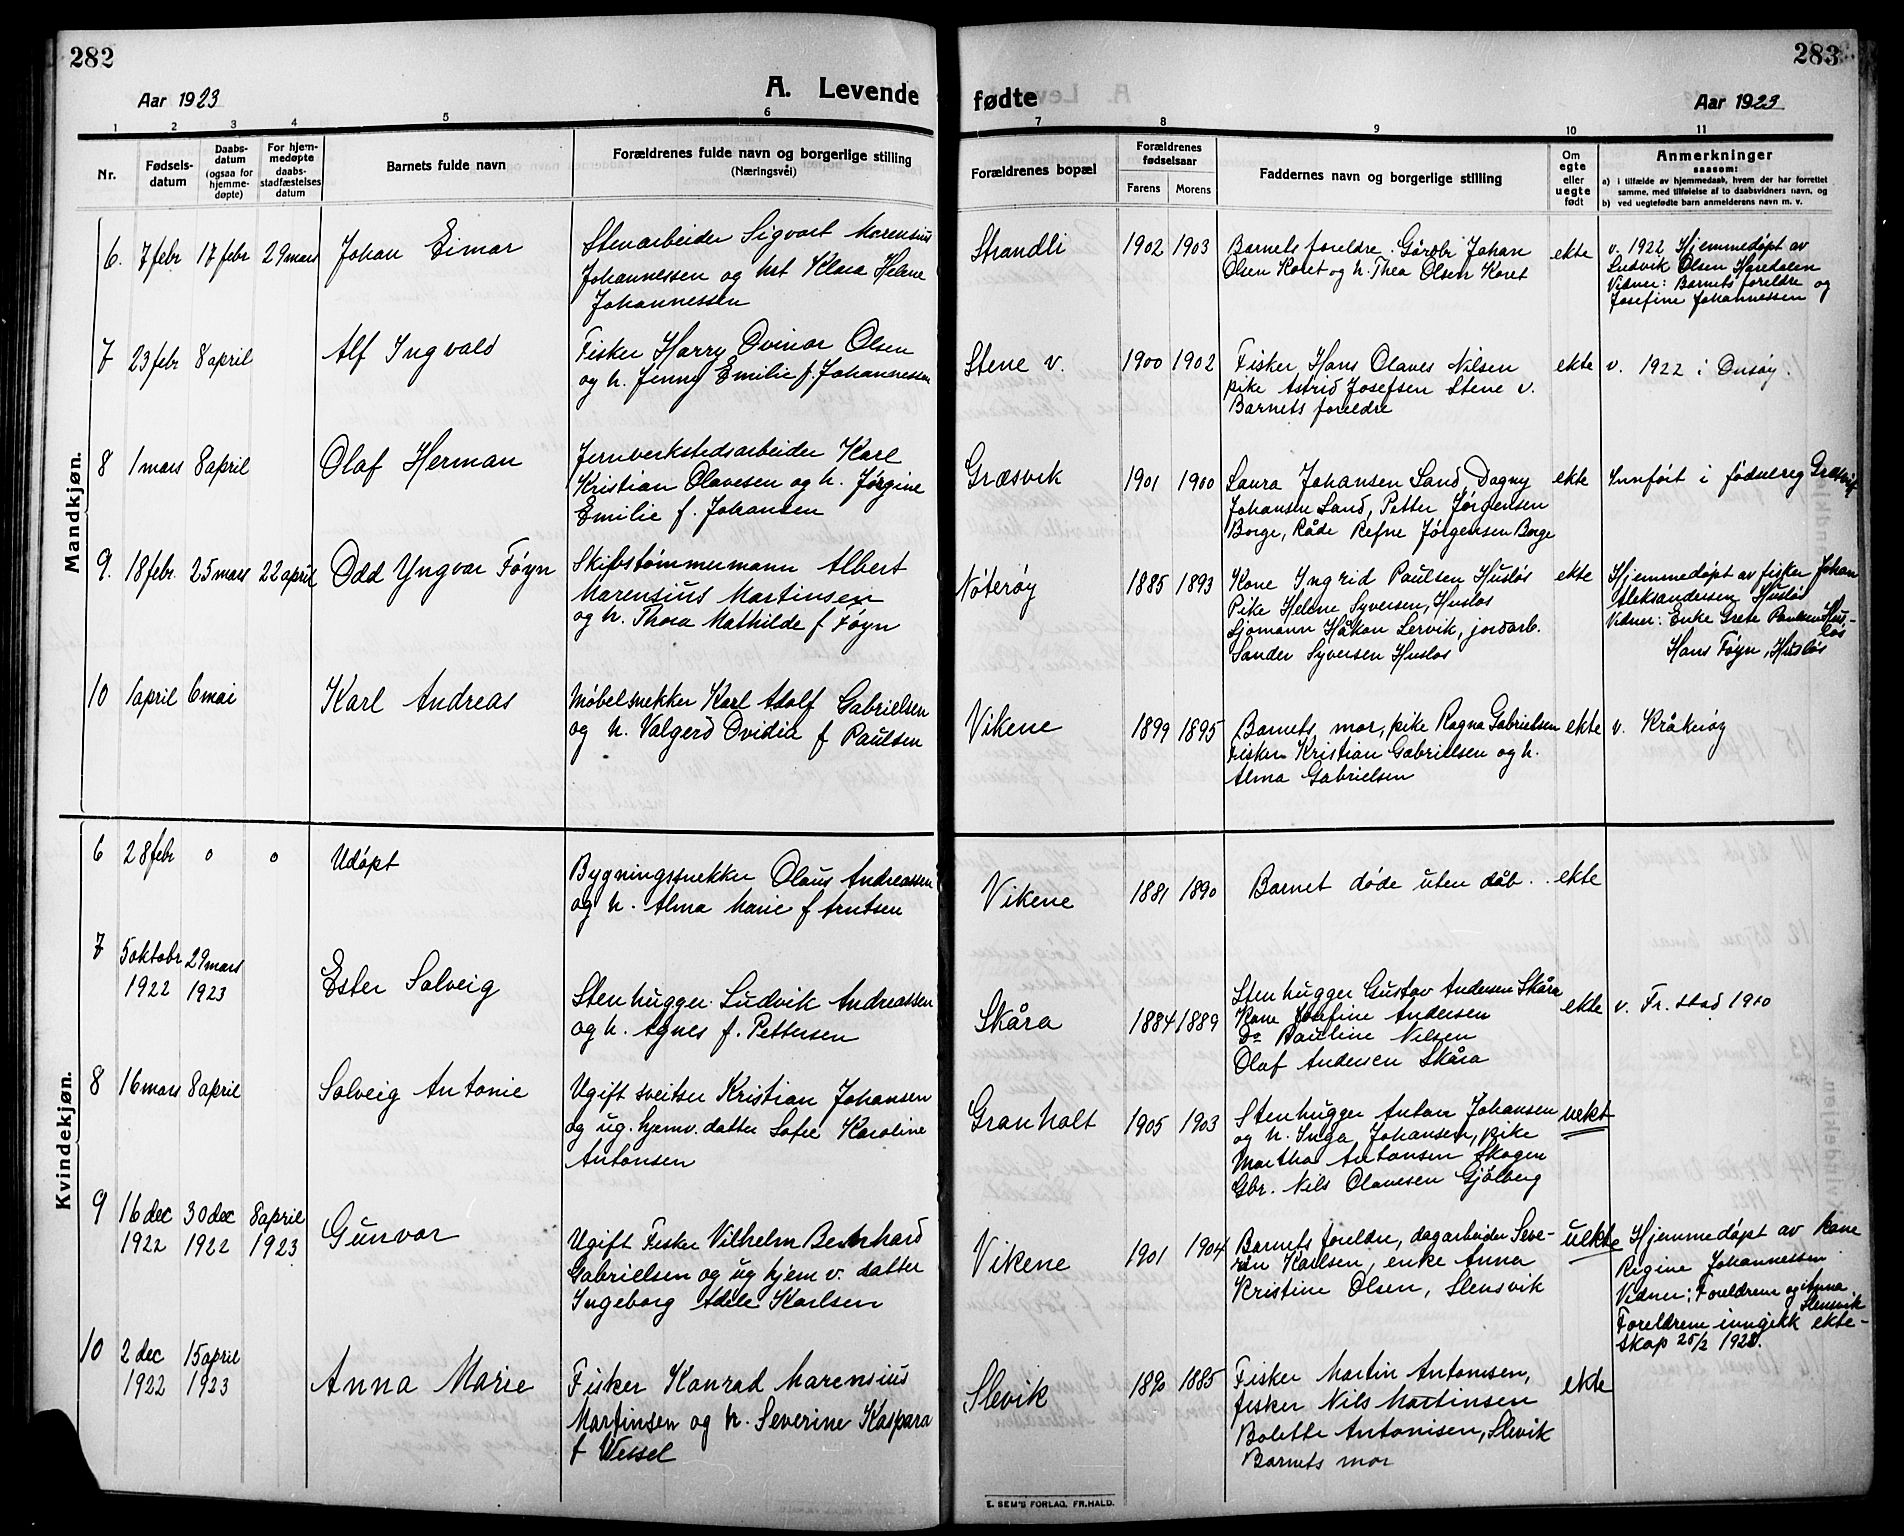 282
Aar 1923
A. Levende
1 2 3 4 5 6
Nr.
Fødsels-
datum
Daabs-
datum
(ogsaa for
hjemme-
døpte)
For hjem-
medøpte
daabs-
stadfæstelses
datum
Barnets fulde navn
Forældrenes fulde navn og borgerlige stilling
(Næringsvei)
Mandkjøn.
6. 7 febr 17 febr 29 mars Johan Eimar
Stenarbeider Sigvart Marensius
Johannessen og hst Klara Helene
Johannessen
7 23 febr 8 april Alf Ingvald
Fisker Harry Ovinar Olsen
og h. Jenny Emilie f. Johannessen
8 1 mars 8 april Olaf Herman
Jernverkstedsarbeider Karl
Kristian Olavesen og h. Jørgine
Emilie f. Johansen
9. 18 febr. 25 mars 22 april Odd Yngvar Føyn
Skibstømmermann Albert
Marensius Martinsen
og h. Thora Mathilde f Føyn
10 1 april 6 mai Karl Andreas
Møbelsnekker Karl Adolf Gabrielsen
og h. Valgerd Ovidia f Paulsen
Kvindekjøn.
6 28 febr o o Udøpt
Bygningssnekker Olaus Andreassen
og h. Alma Marie f Arntsen
7 5 oktobr 29 mars
1922 1923
Ester Solveig
Stenhugger Ludvik Andreassen
og h. Agnes f. Pettersen
8 16 mars 8 april Solveig Antonie
Ugift sveitser Kristian Johansen
og ug. hjemv. datter Sofie Karoline
Antonsen
9 16 dec 30 dec 8 april
1922 1922 1923
Gunvor
Ugift Fisker Vilhelm Bernhard
Gabrielsen og ug hjem v. datter
Ingeborg Adele Karlsen
10 2 dec 15 april
1922 1923
Anna Marie
Fisker Konrad Marensius
Martinsen og h. Severine Kaspara
f Wessel
283
fødte
Aar 1923
7 8 9 10 11
Forældrenes bopæl
Forældrenes
fødselsaar
Farens Morens
Faddernes navn og borgerlige stilling
Om
egte
eller
uegte
født
Anmerkninger
saasom:
a) i tilfælde av hjemmedaab, hvem der har forrettet
samme, med tilføielse af to daabsvidners navn, og
b) ved uegtefødte barn anmelderens navn m. v.
Strandli 1902 1903
Barnets foreldre, Gårdbr Johan
Olsen Koret og h. Thea Olsen Koret
ekte
v. 1922 Hjemmedøpt av
Ludvik Olsen Haredalen
Vidner: Barnets foreldre og
Josefine Johannessen
Stene v. 1900 1902
Fisker Hans Olaves Nilsen
pike Astrid Josefsen Stene v.
Barnets foreldre
ekte
v. 1922 i Onsøy.
Græsvik 1901 1900
Laura Johansen Sand, Dagny
Johansen Sand, Petter Jørgensen
Borge, Råde Refne Jørgensen Borge
ekte
Innført i fødselreg Græsvik
Nøterøy 1885 1893
Kone Ingrid Paulsen Husløs
Pike Helene Syversen, Husløs
Sjømann Håkon Lervik, jordarb.
Sander Syversen Husløs
ekte
Hjemmedøpt av fisker Johan
Aleksandersen Husløs
Vidner: Enke Grete Paulsen Hus-
løs
Hans Føyn, Husløs
Vikene 1899 1895
Barnets mor, pike Ragna Gabrielsen
Fisker Kristian Gabrielsen og h.
Alma Gabrielsen
ekte
v. Kråkerøy
Vikene 1881 1890
Barnet døde uten dåb.
ekte
Skåra 1884 1889
Stenhugger Gustav Andersen Skåra
Kone Josefine Andersen
Do Pauline Nilsen
Olaf Andersen Skåra
ekte
v. Fr. stad 1910
Granholt 1905 1903
Stenhugger Anton Johansen
og h. Inga Johansen, pike
Martha Antonsen Skogen
Gbr. Nils Olavesen Gjølberg
uekt
Vikene 1901 1904
Barnets foreldre, dagarbeider Seve-
rin Karlsen, enke Anna
Kristine Olsen, Slensvik
uekte
Hjemmedøpet av kone
Regine Johannessen
Vidner: Foreldrene og Anna
Slensvik
Foreldrene inngikk ekte-
skap 25/2 1923.
Slevik 1890 1885
Fisker Martin Antonisen,
fisker Nils Martinsen
Bolette Antonisen, Slevik
Barnets mor
ekte
E. SEM'S FORLAG, FR.HALD.